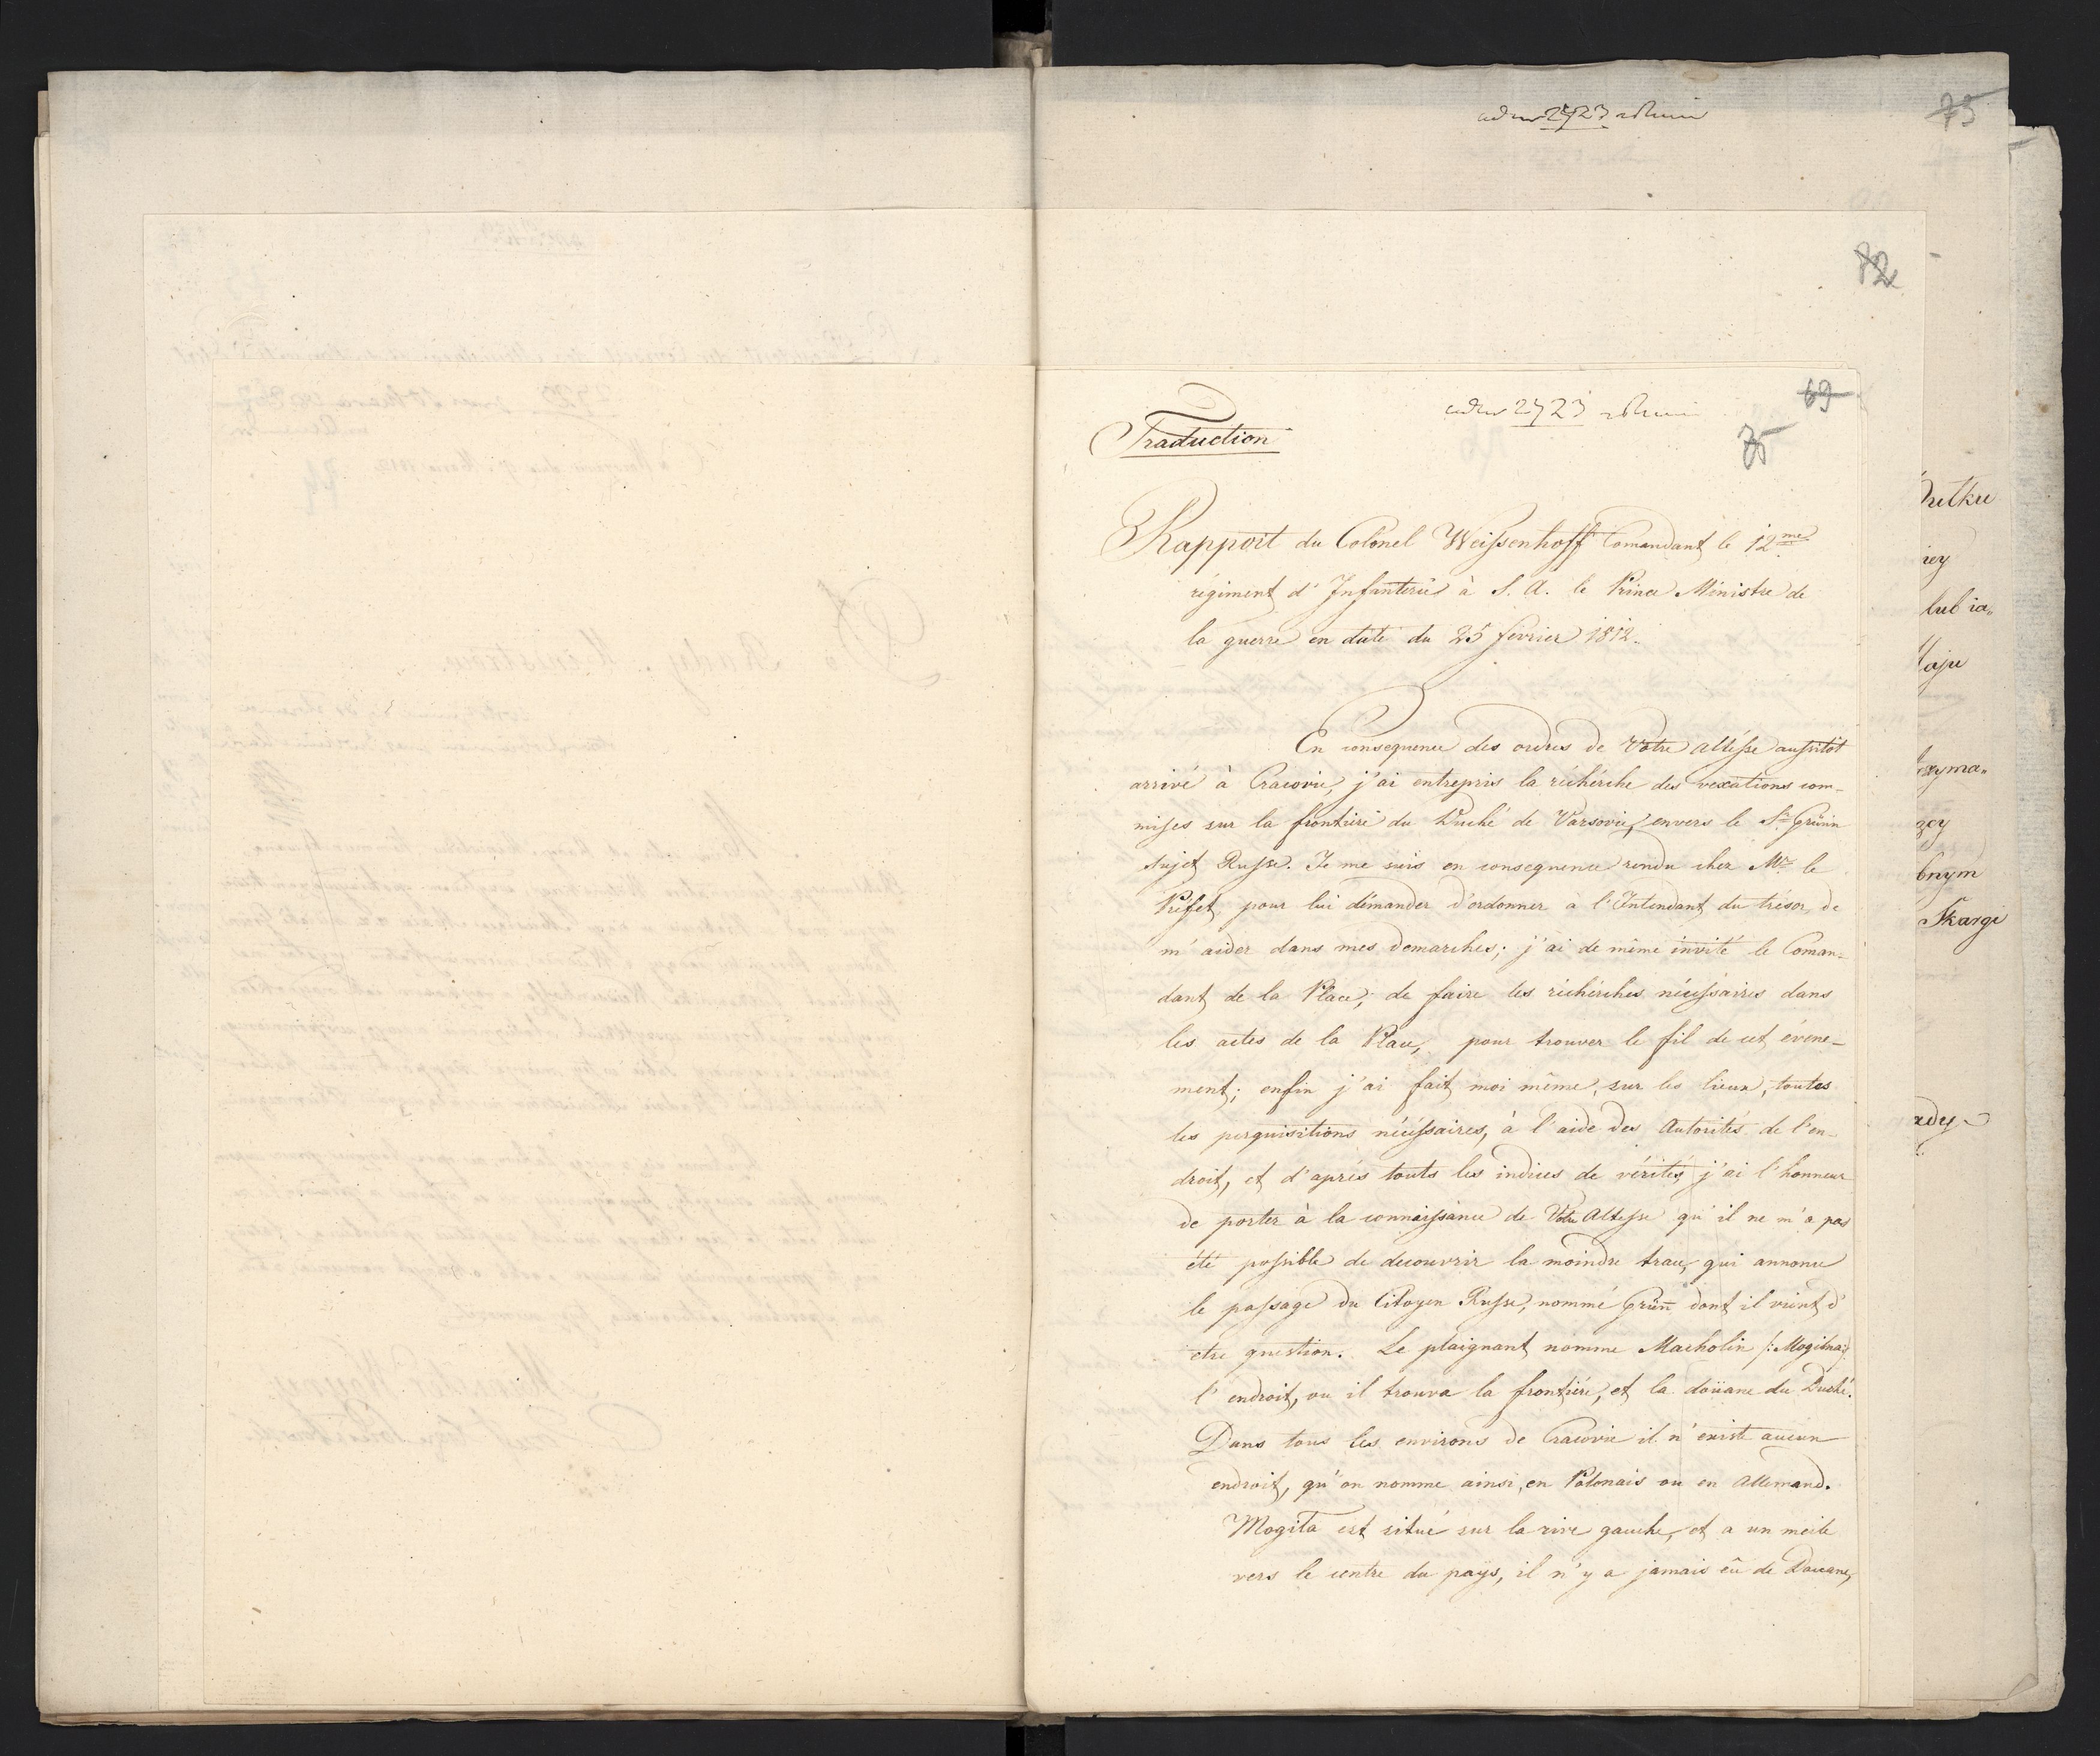 75
82
ad nr 2723
69
75
Traduction
Rapport du Colonel Weissenhoff Comandant le 12me
régiment d'Infanterie à S. A. le Prince Ministre de
la guerre en date du 25 fevrier 1812.
En consequence des ordres de Votre Altésse aussitôt
arrivé à Cracovie, j'ai entrepris la réchérche des vexations com-
mises sur la frontiére du Duché de Varsovie, envers le Sr Grünn
sujet Russe. Je me suis en consequence rendu chez Mr le
Préfet, pour lui démander d'ordonner à l'Intendant du trésor, de
m'aider dans mes demarches; j'ai de même invité le Coman-
dant de la Place, de faire les réchérches nécéssaires dans
les actes de la Place, pour trouver le fil de cet évene-
ment; enfin j'ai fait moi même, sur les lieux, toutes
les perquisitions nécéssaires, à l'aide des Autorités de l'en-
droit, et d'aprés touts les indices de vérités, j'ai l'honneur
de porter à la connaissance de Votre Altesse qu'il ne m'a pas
été possible de decouvrir la moindre trace, qui annonce
le passage du Citoyen Russe, nommé Grünn dont il vient d'
être question. Le plaignant nomme Macholin /: Mogilna:/
l'endroit, ou il trouva la frontiére, et la doüane du Duché.
Dans tous les environs de Cracovie il n'existe aucun
endroit, qu'on nomme ainsi, en Polonais ou en Allemand.
Mogiła est situé sur la rive gauche, et a un meile
vers le centre du pays, il n'y a jamais eû de Douane,
rutku
iey
lub ia„
zyma„
zey
bnym
Skargi
ady